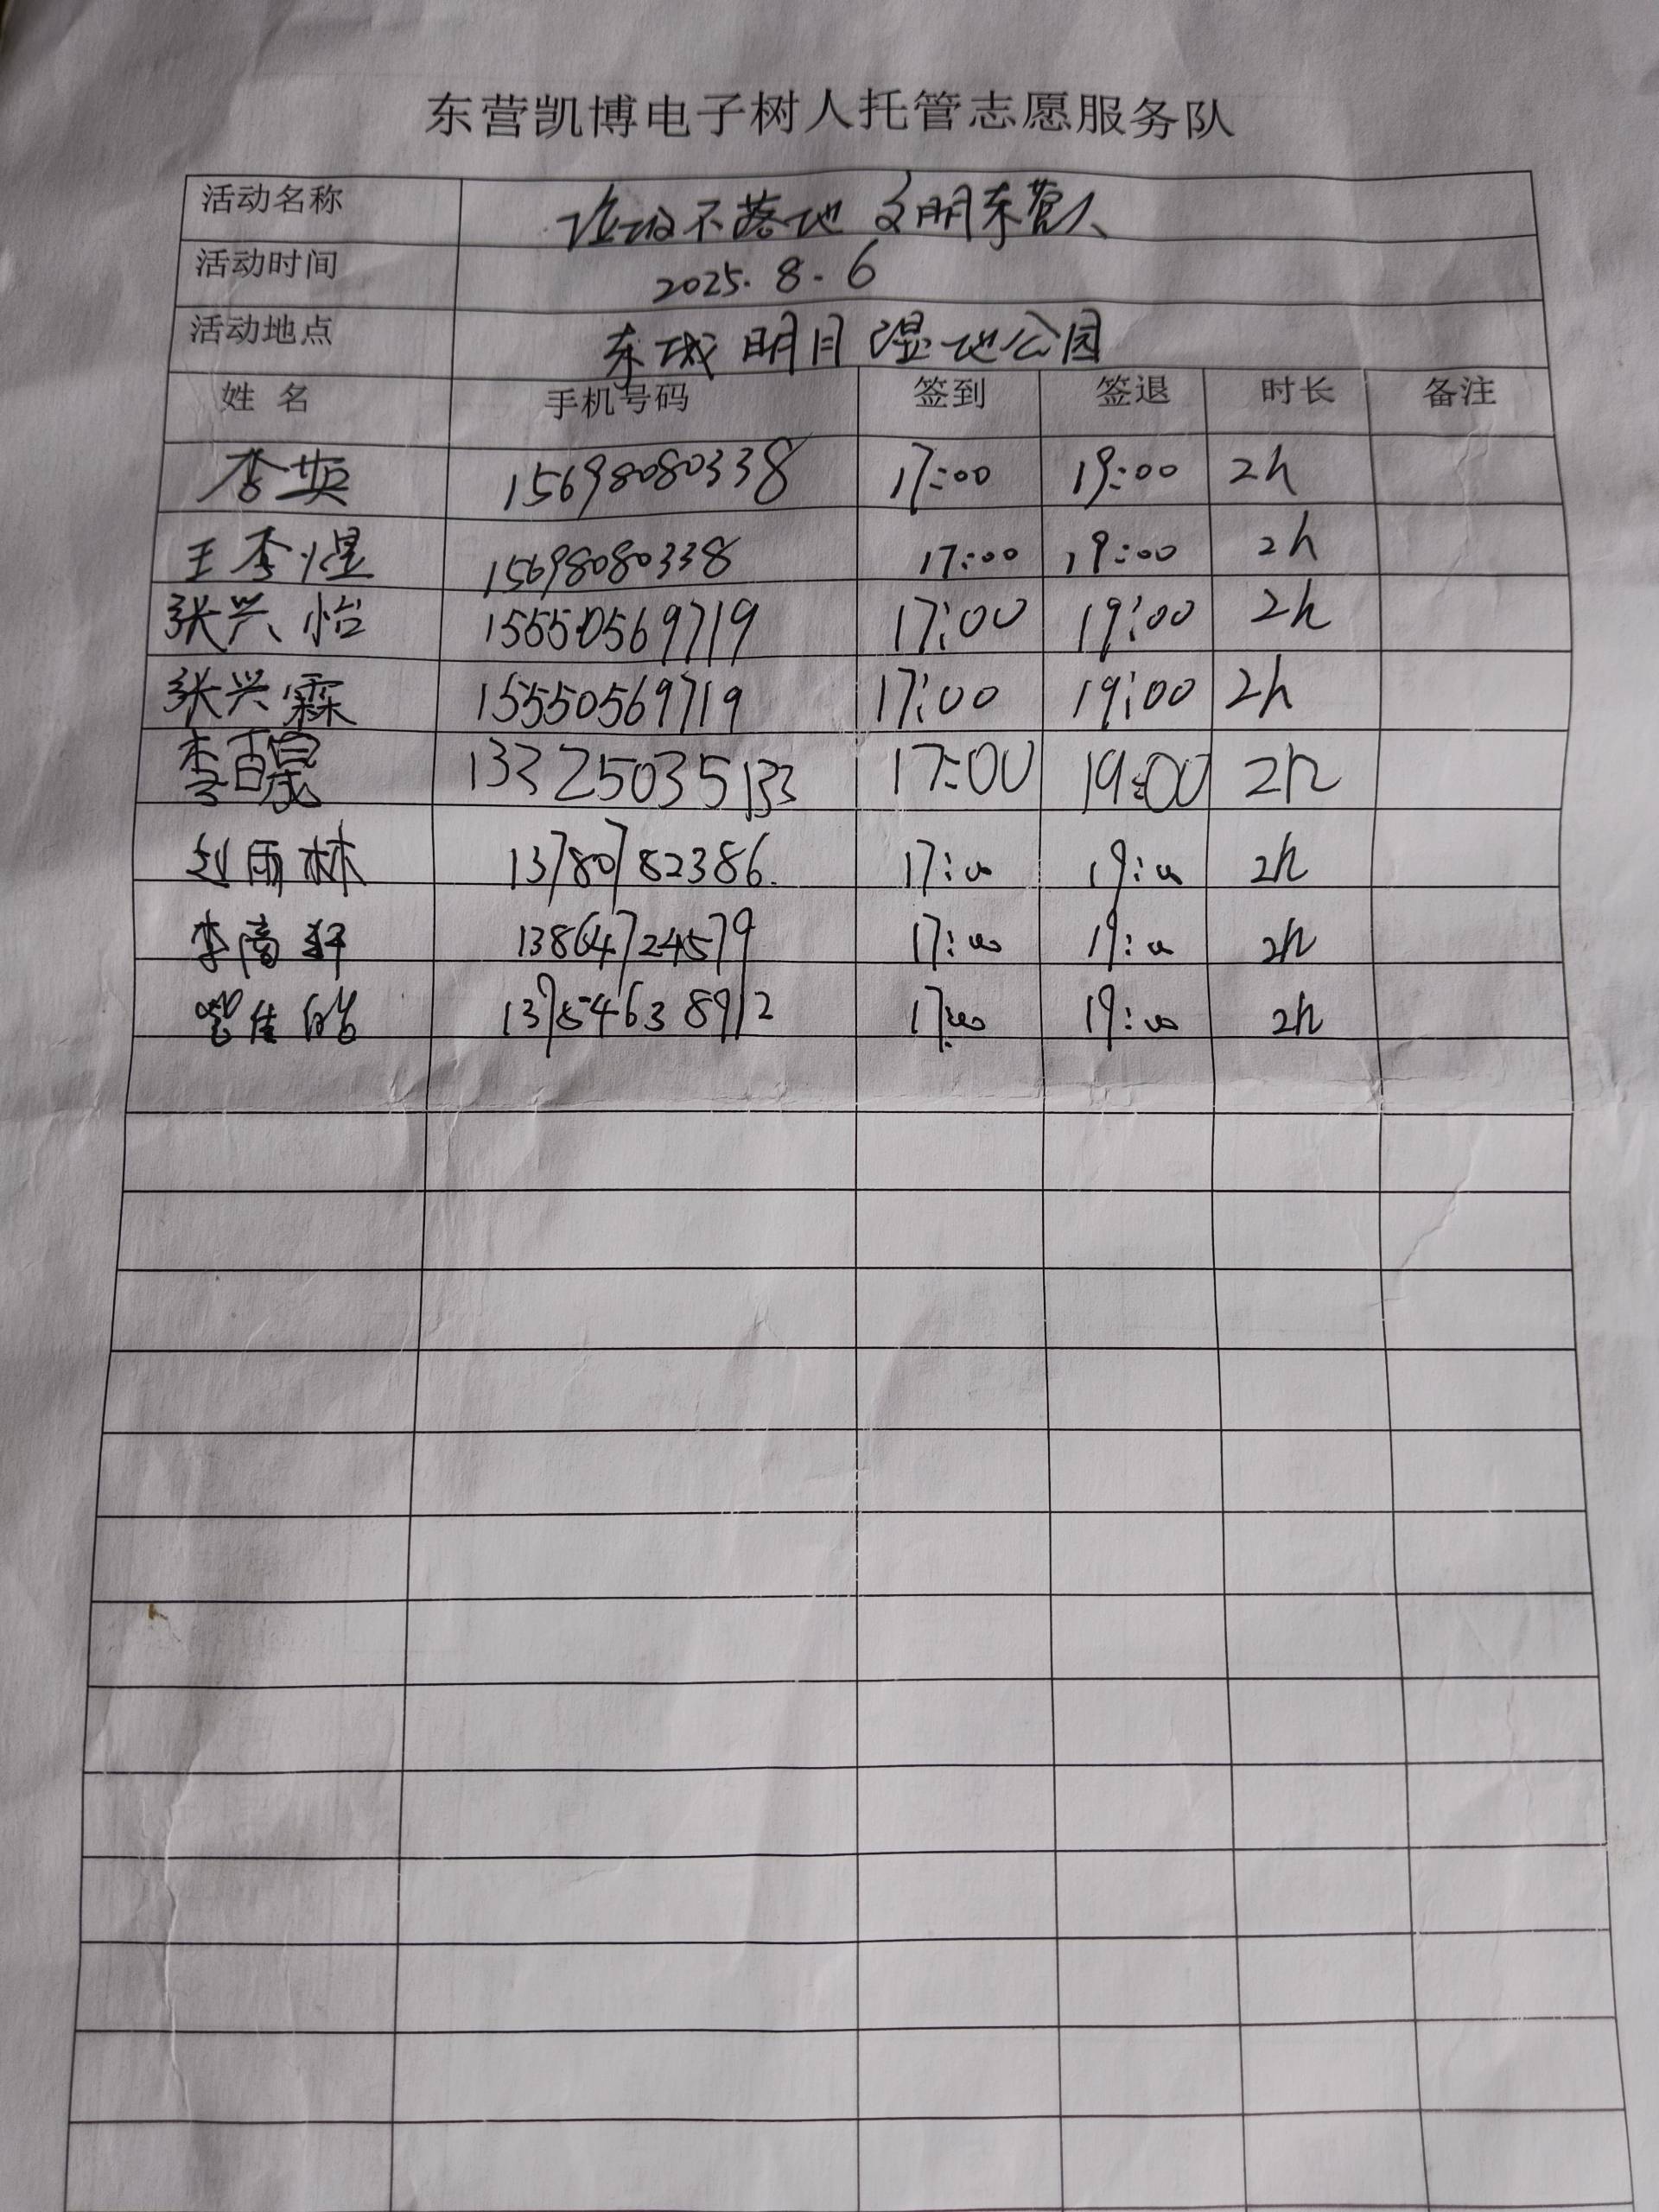 东营凯博电子树人托管志愿服务队
活动名称 垃圾不落地 文明东营人
活动时间 2025.8.6
活动地点 东城明月湿地公园
姓 名 手机号码 签到 签退 时长 备注
李英 15698080338 17:00 19:00 2h
王李煜 15698080338 17:00 19:00 2h
张兴怡 15550569719 17:00 19:00 2h
张兴霖 15550569719 17:00 19:00 2h
李百晟 13325035133 17:00 19:00 2h
赵雨林 13780782386 17:00 19:00 2h
李 轩 13864724579 17:00 19:00 2h
佳皓 13754638912 17:00 19:00 2h